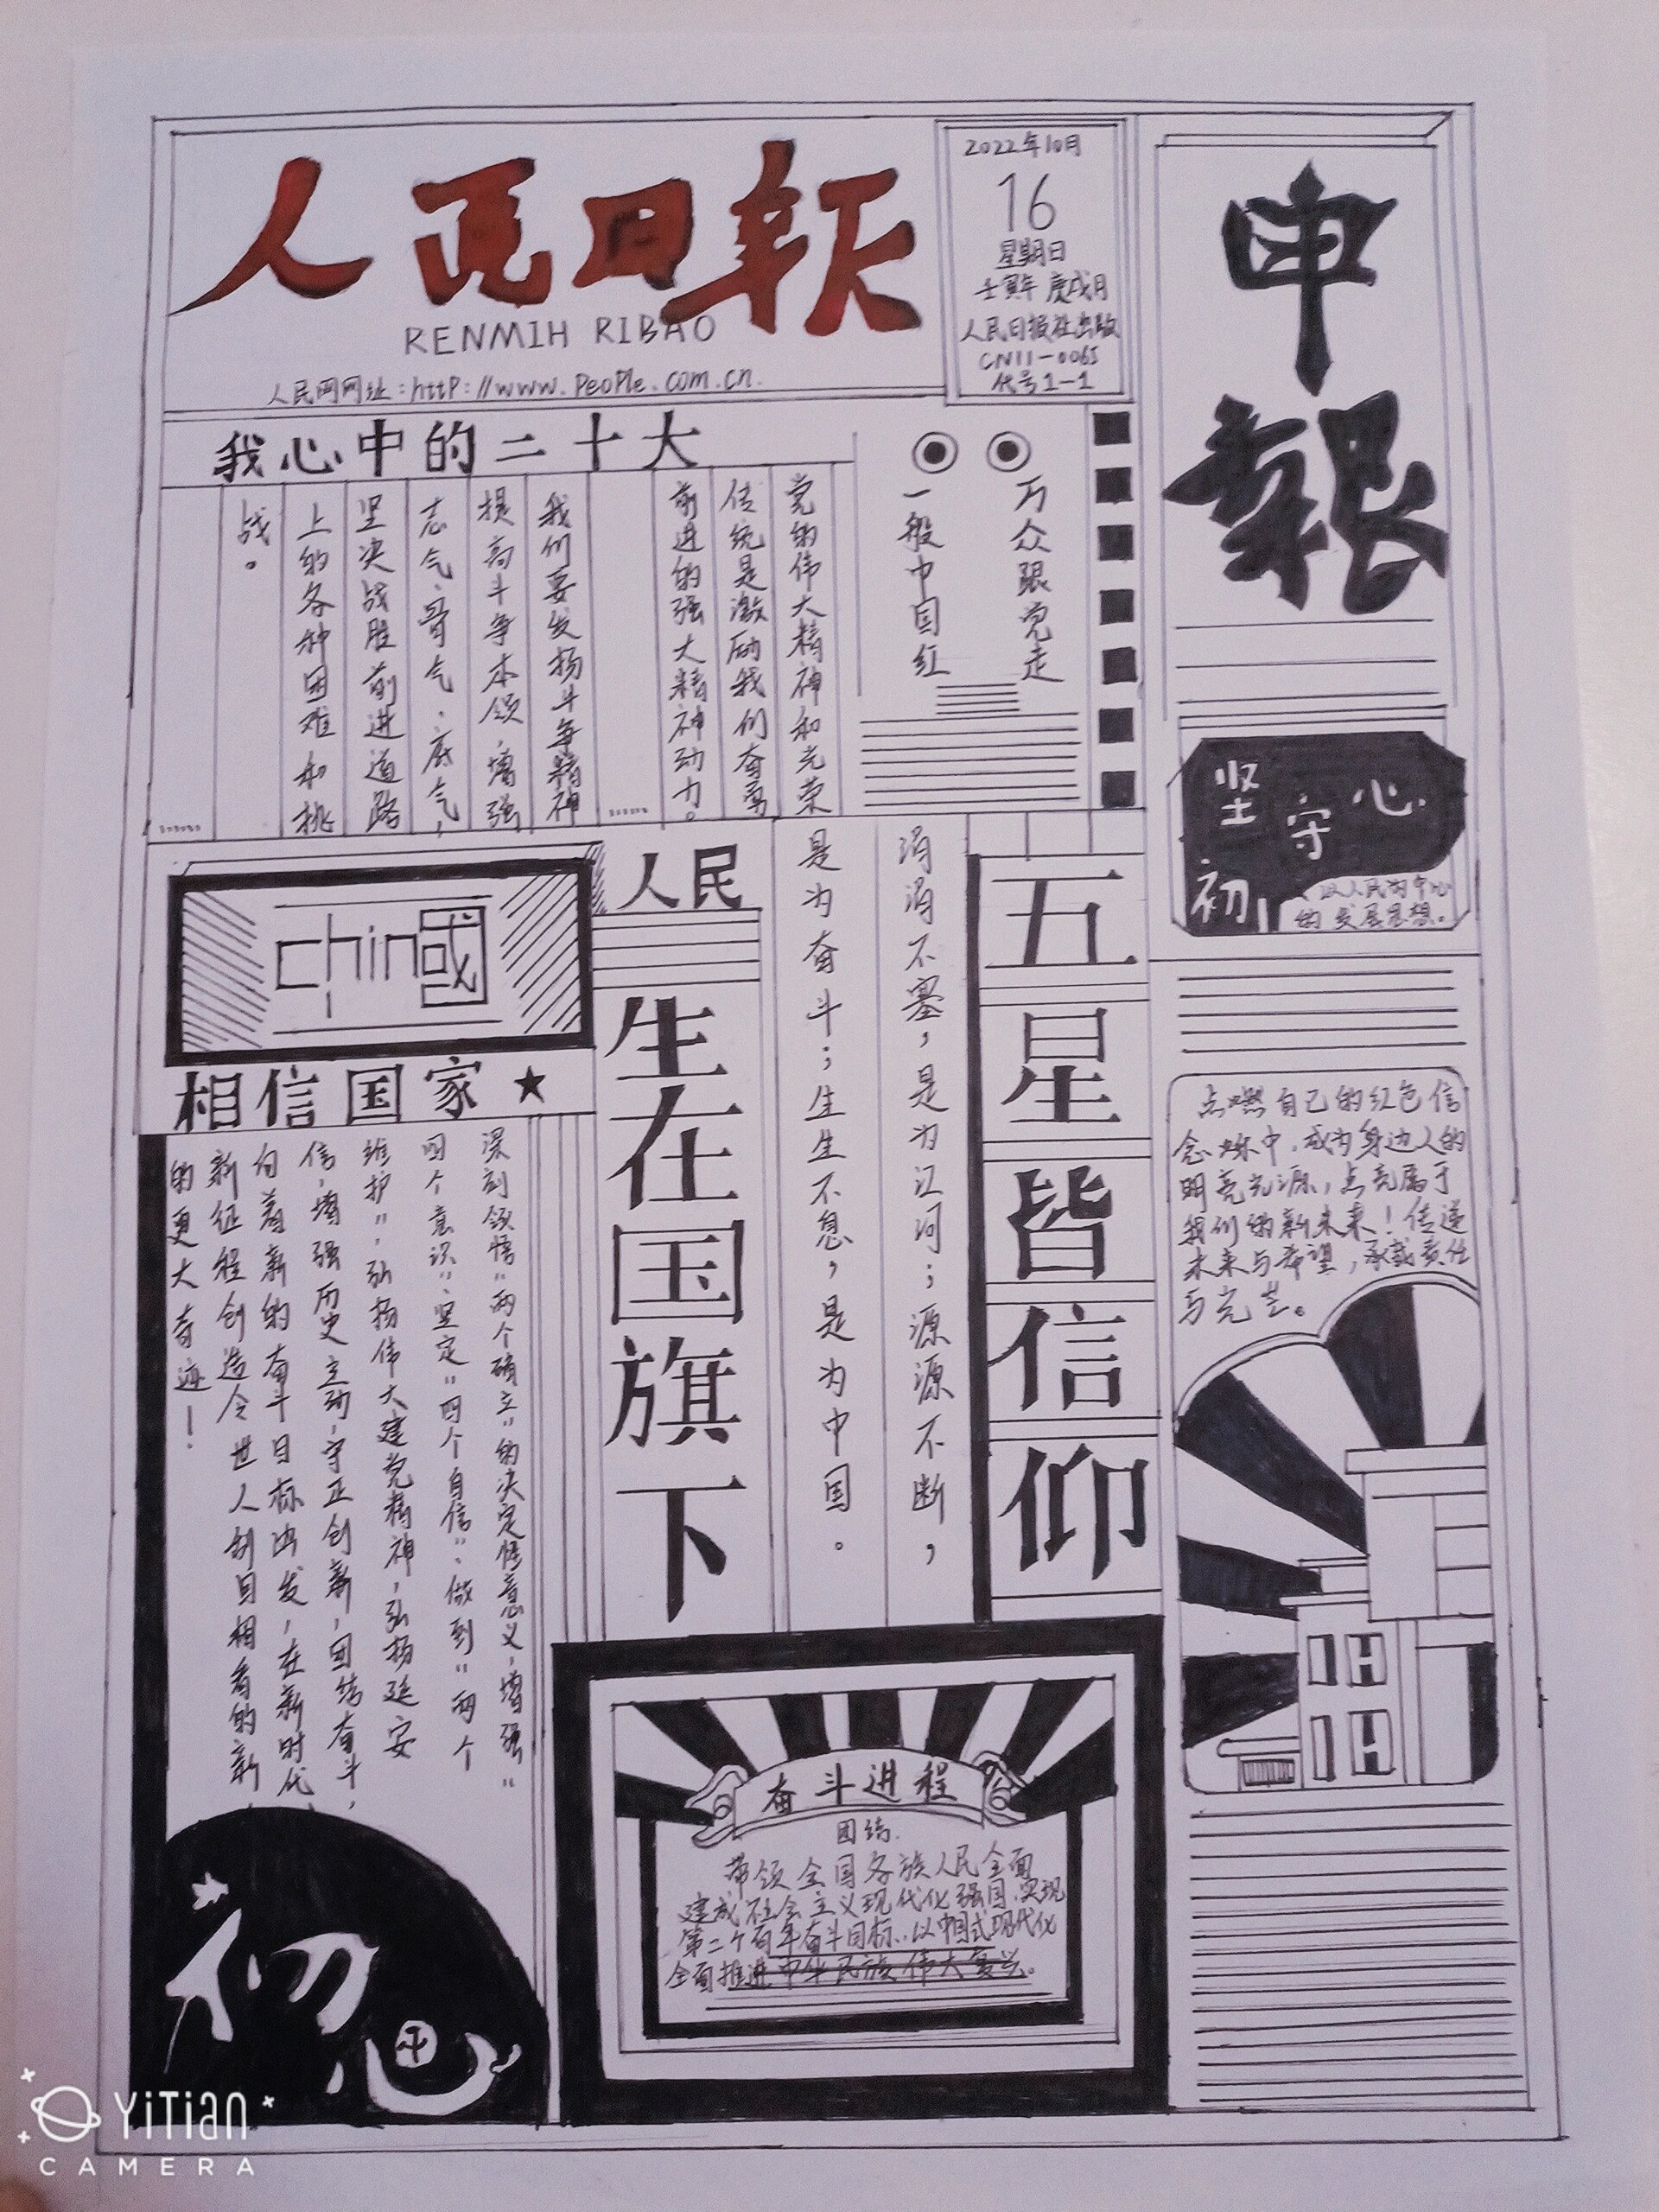 人民日報
RENMIH RIBAO
人民网网址:http://www.PeoPle.com.cn.
2022年10月
16
星期日
壬寅年 庚戌月
人民日报社出版
CN11-0065
代号1-1
申報
我心中的二十大
党的伟大精神和光荣
传统是激励我们奋勇
前进的强大精神动力。
……
我们要发扬斗争精神
提高斗争本领,增强
志气、骨气、底气,
坚决战胜前进道路
上的各种困难和挑
战。
……
万众跟党走
一般中国红
坚守初心
以人民为中心
的发展思想。
chin國
相信国家★
深刻领悟“两个确立”的决定性意义,增强“
四个意识”,坚定“四个自信”、做到“两个
维护”,弘扬伟大建党精神,弘扬延安
信,增强历史主动,守正创新,团结奋斗,
向着新的奋斗目标出发,在新时代
新征程创造令世人刮目相看的新
的更大奇迹!
人民
生在国旗下
涓涓不塞,是为江河;源源不断,
是为奋斗;生生不息,是为中国。
五星皆信仰
点燃自己的红色信
念炼中,成为身边人的
明亮光源,点亮属于
我们的新未来!传递
未来与希望,承载责任
与光芒。
初心
奋斗进程
团结.
带领全国各族人民全面
建成社会主义现代化强国,实现
第二个百年奋斗目标,以中国式现代化
全面推进中华民族伟大复兴。
YiTian
CAMERA